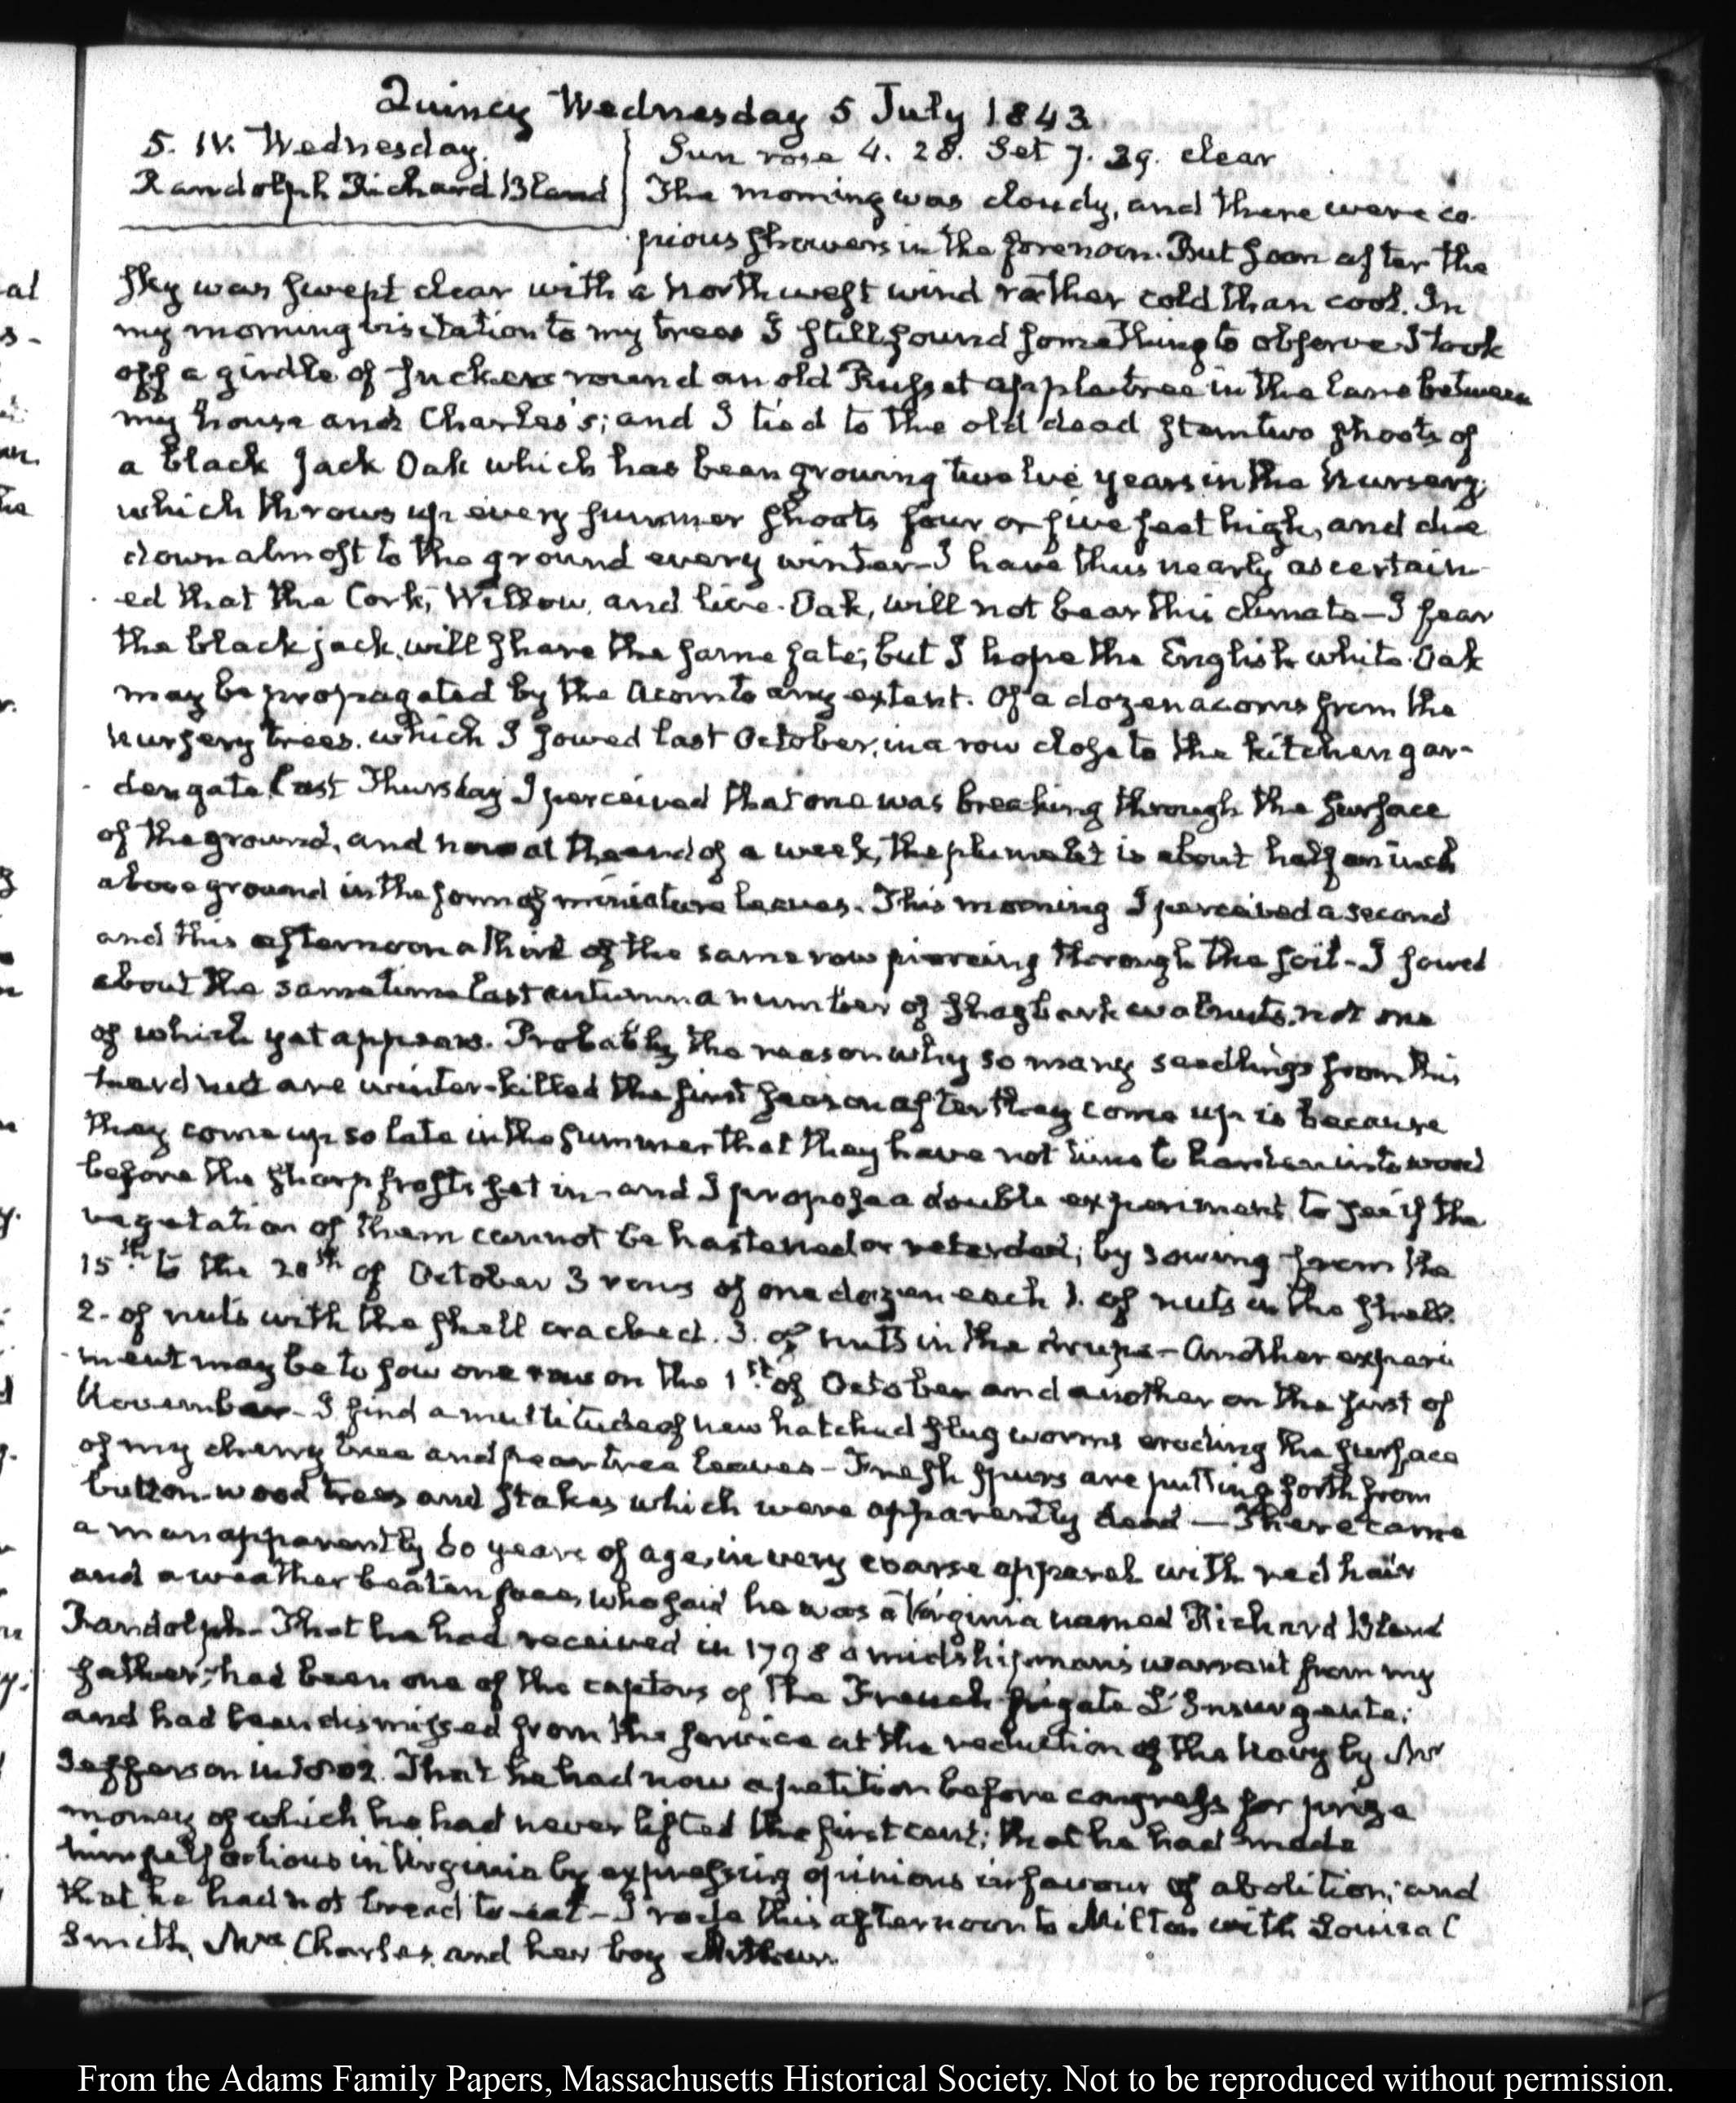 Quincy Wednesday 5 July 1843
5. IV. Wednesday.
Randolph Richard Bland
Sun rose 4. 28. Set 7. 39. clear
The morning was cloudy, and there were co-
pious showers in the forenoon. But soon after the
sky was swept clear with a Northwest wind rather cold than cool. In
my morning visitation to my trees I still found something to observe I took
off a girdle of suckers round an old Russet apple tree in the lane between
my house and Charles's; and I tied to the old dead stem two shoots of
a black Jack Oak which has been growing twelve years in the Nursery;
which throws up every summer shoots four or five feet high, and die
down almost to the ground every winter- I have thus nearly ascertain-
ed that the Cork, Willow, and live-Oak, will not bear this climate — I fear
the black jack, will share the same fate; but I hope the English white-Oak
may be propagated by the Acorn to any extent. Of a dozen acorns from the
Nursery trees. which I sowed last October, in a row close to the kitchen gar-
den gate last Thursday I perceived that one was breaking through the surface
of the ground, and now at the end of a week, the plumelet is about half an inch
above ground in the form of miniature leaves. This morning I perceived a second
and this afternoon a third of the same row piercing through the soil- I sowed
about the same time last autumn a number of shagbark walnuts, not one
of which yet appears. Probably the reason why so many seedlings from this
hard nut are winter-killed the first season after they come up is because
they come up so late in the summer that they have not time to harden into wood
before the sharp frosts set in- and I propose a double experiment to see if the
vegetation of them cannot be hastened or retarded; by sowing from the
15th to the 20th of October 3 rows of one dozen each 1. of nuts in the shell.
2. of nuts with the shell cracked. 3. of nuts in the drupe — Another experi
ment may be to sow one row on the 1st of October and another on the first of
November- I find a multitude of new hatched slug worms eroding the surface
of my cherry tree and pear tree leaves — Fresh spurs are putting forth from
button-wood trees and stakes which were apparently dead — There came
a man apparently 60 years of age, in very coarse apparel with red hair
and a weather beaten face, who said he was a Virginia named Richard Bland
Randolph- That he had received in 1798 a midshipman's warrant from my
father; had been one of the captors of the French frigate L'Insurgente;
and had been dismissed from the service at the reduction of the Navy by Mr
Jefferson in 1802. That he had now a petition before congress for prize
money of which he had never lifted the first cent; that he had made
himself odious in Virginia by expressing opinions in favour of abolition; and
that he had not bread to eat — I rode this afternoon to Milton with Louisa C
Smith, Mrs Charles, and her boy Arthur.
From the Adams Family Papers, Massachusetts Historical Society. Not to be reproduced without permission.